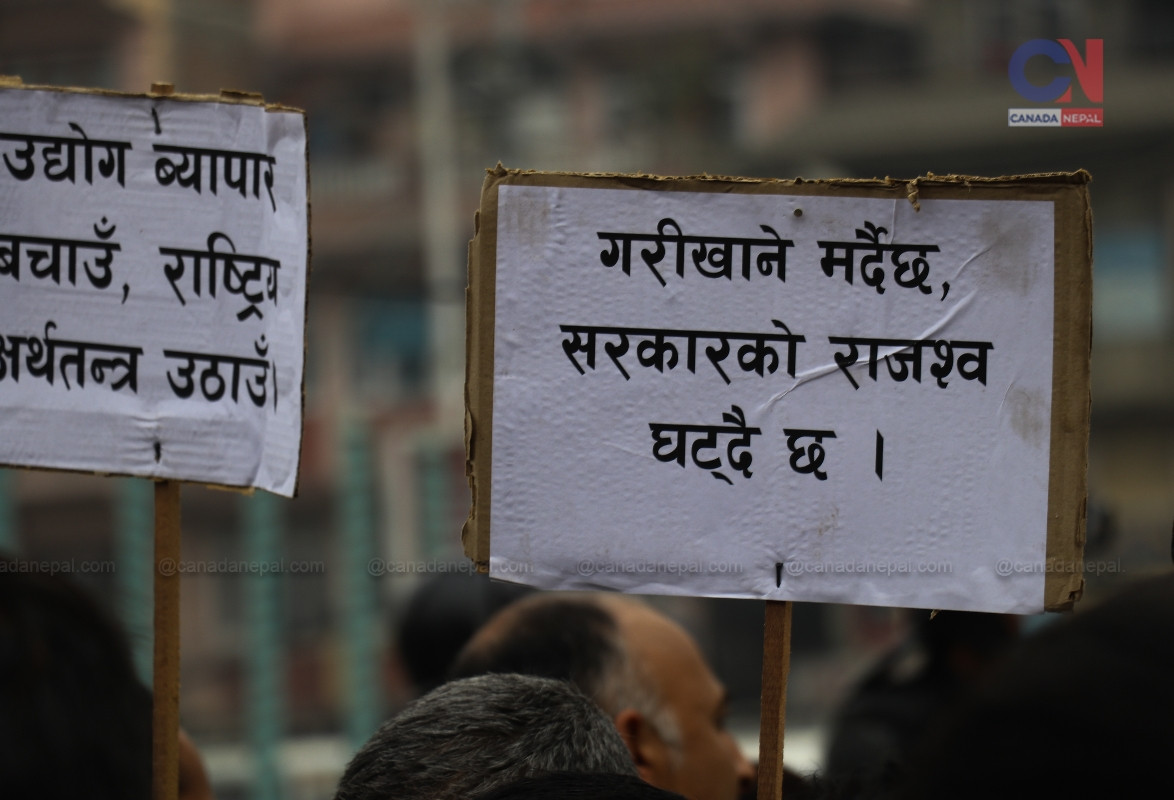 उद्योग ब्यापार
बचाउँ, राष्ट्रिय
अर्थतन्त्र उठाउँ।
गरीखाने मर्दैछ,
सरकारको राजश्व
घट्दै छ ।
CN
CANADA NEPAL
@canadanepal.com @canadanepal.com @canadanepal.com @canadanepal.com @canadanepal.com @canadanepal.com